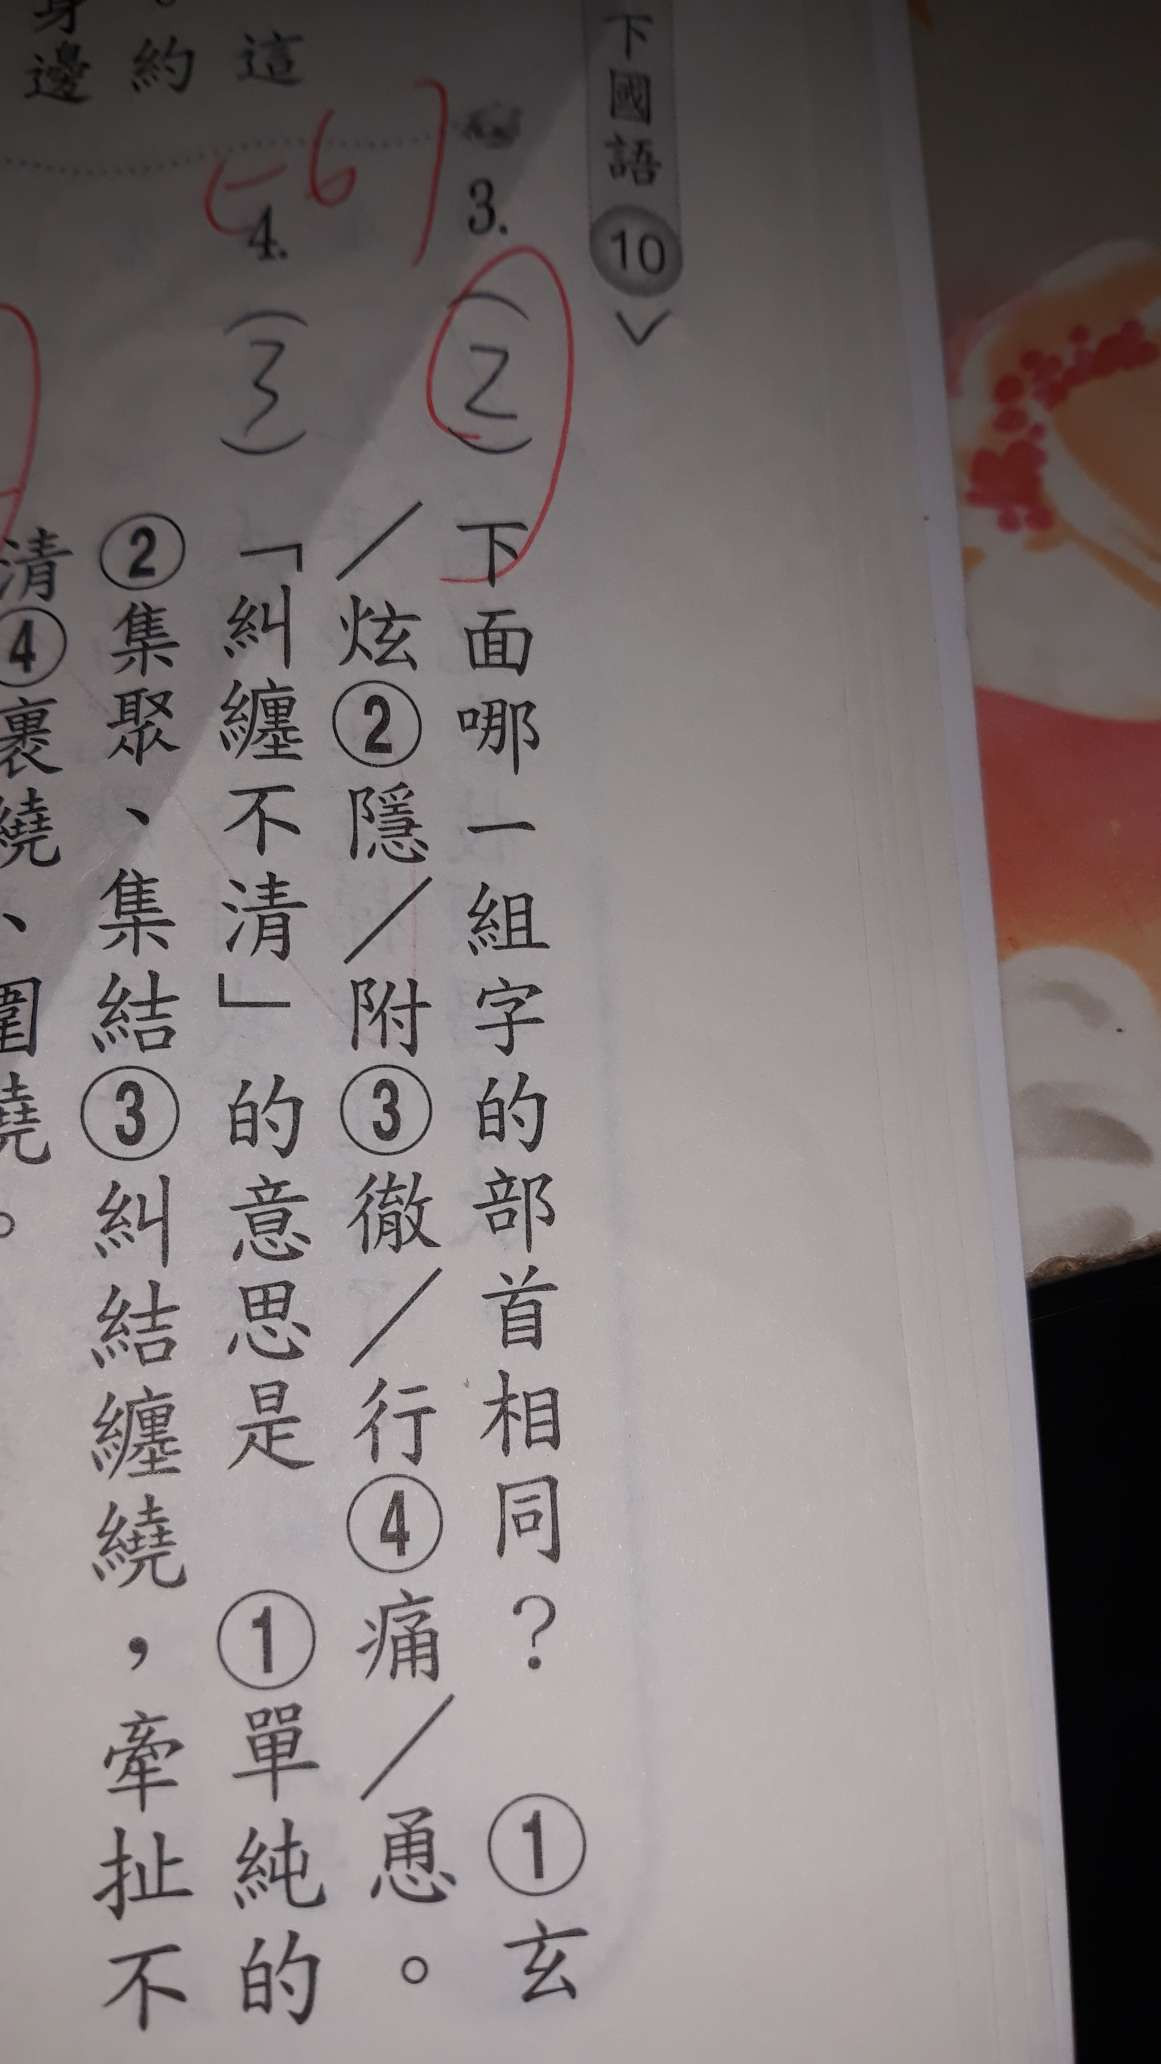 下國語
10
3.
(2)
下面哪一組字的部首相同？ ①玄
／炫②隱／附③徹／行④痛／恿。
4.
(3)
「糾纏不清」的意思是 ①單純的
②集聚、集結③糾結纏繞，牽扯不
清④裹繞、圍繞。
-6
這
約
邊